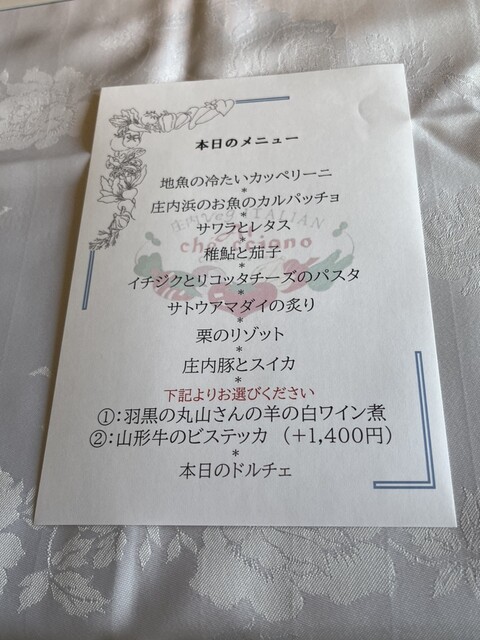 本日のメニュー
地魚の冷たいカッペリーニ
*
庄内浜のお魚のカルパッチョ
*
庄内 Veg ITALIAN
サワラとレタス
*
稚鮎と茄子
*
イチジクとリコッタチーズのパスタ
*
サトウアマダイの炙り
*
栗のリゾット
*
庄内豚とスイカ
*
下記よりお選びください
①:羽黒の丸山さんの羊の白ワイン煮
②:山形牛のビステッカ (+1,400円)
*
本日のドルチェ